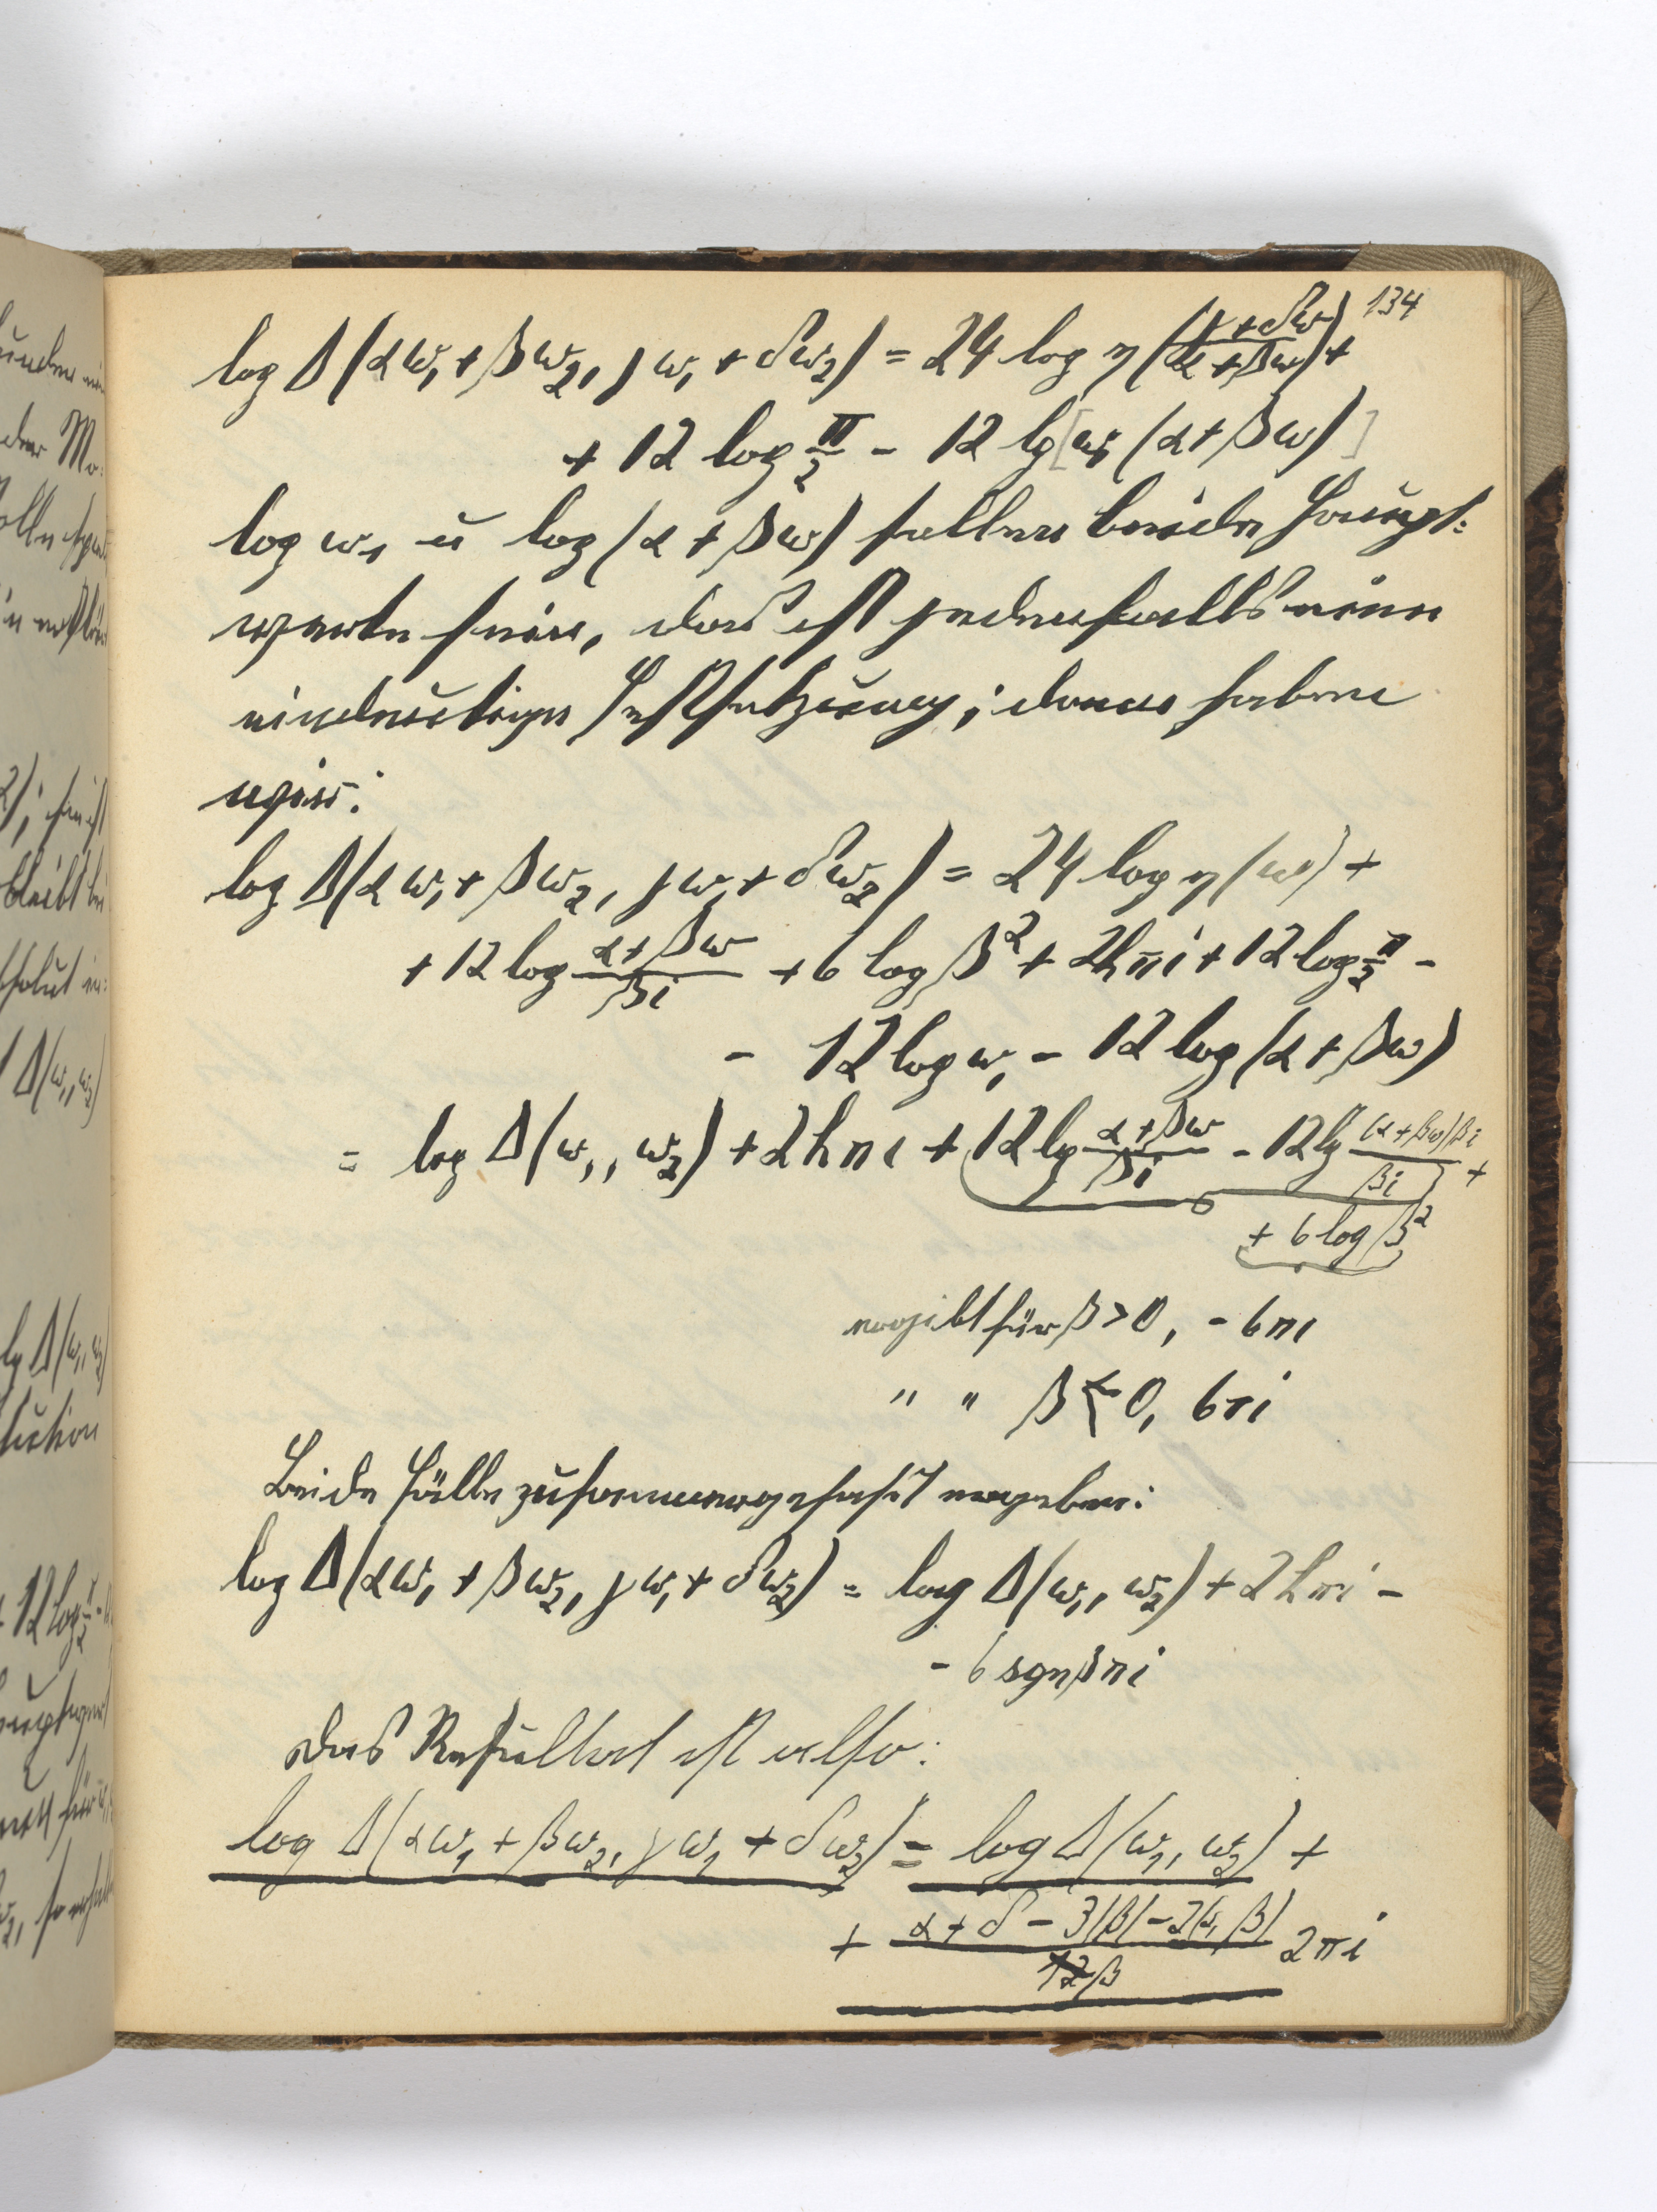 134
log Δ(αω₁ + βω₂, γω₁ + δω₂) = 24 log η((γ + δω)/(α + βω)) +
+ 12 log π/2 - 12 lg[ω₁(α + βω)]
log ω₁ u log(α + βω) sollen beide Haupt-
werte sein, das ist jedenfalls eine
eindeutige Festsetzung; dann haben
wir:
log Δ(αω₁ + βω₂, γω₁ + δω₂) = 24 log η(ω) +
+ 12 log (α + βω)/(βi) + 6 log β² + 2hπi + 12 log π/2 -
- 12 log ω₁ - 12 log(α + βω)
= log Δ(ω₁, ω₂) + 2hπi + 12 lg (α + βω)/(βi) - 12 lg ((α + βω)βi)/(βi) +
+ 6 log β²
ergibt für β > 0, - 6πi
" " β < 0, 6πi
Beide Fälle zusammengefaßt ergeben:
log Δ(αω₁ + βω₂, γω₁ + δω₂) = log Δ(ω₁, ω₂) + 2hπi -
- 6 sgnβπi
Das Resultat ist also:
log Δ(αω₁ + βω₂, γω₁ + δω₂) = log Δ(ω₁, ω₂) +
+ (α + δ - 3|β| - 2(α, β))/(β) 2πi